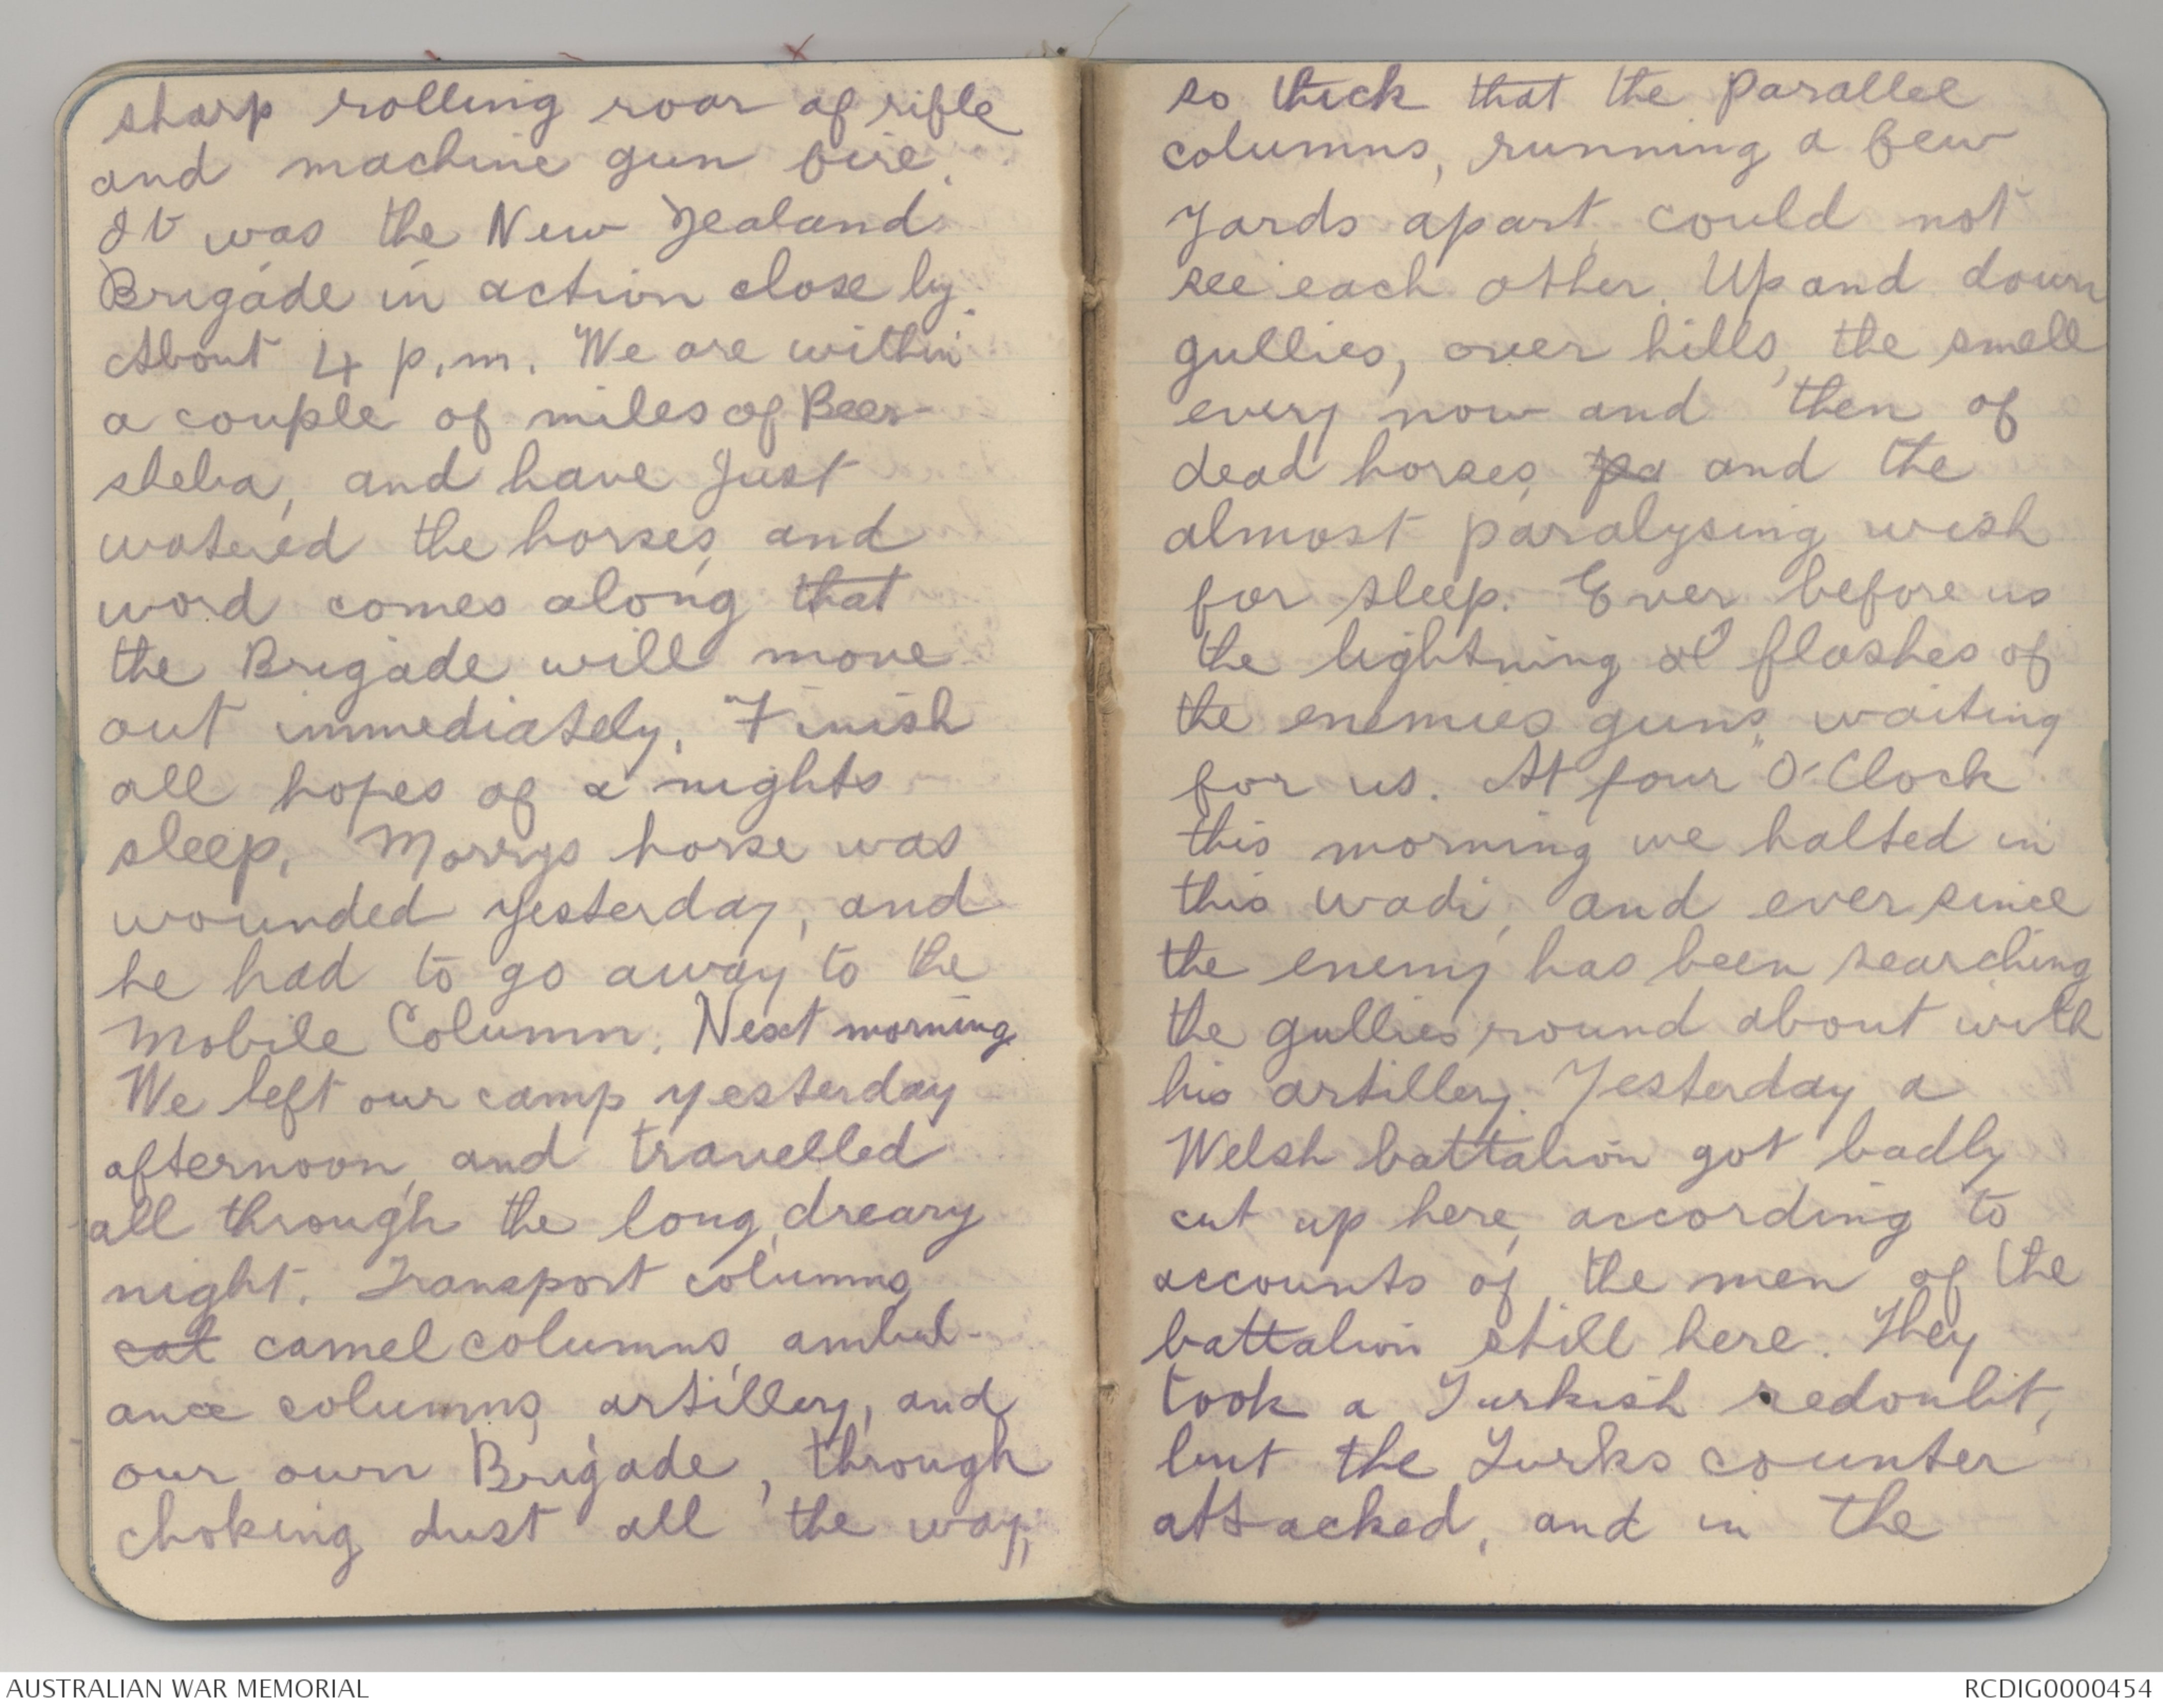 sharp rolling roar of rifle
and machine gun fire.
It was the New Zealand
Brigade in action close by.
About 4 p.m. We are within
a couple of miles of Beer-
sheba, and have just
watered the horses, and
word comes along that
the Brigade will move
out immediately. Finish
all hopes of a nights
sleep. Morrys horse was
wounded yesterday, and
he had to go away to the
Mobile Column. Next morning
We left our camp yesterday
afternoon, and travelled
all through the long, dreary
night. Transport columns,
cat camel columns, ambul-
ance columns, artillery, and
our own Brigade, through
choking dust all the way,
so thick that the parallel
columns, running a few
yards apart, could not
see each other. Up and down
gullies, over hills, the smell
every now and then of
dead horses, pa and the
almost paralysing wish
for sleep. Ever before us
the lightning flashes of
the enemies guns, waiting
for us. At four O'Clock
this morning we halted in
this wadi, and ever since
the enemy has been searching
the gullies round about with
his artillery. Yesterday a
Welsh battalion got badly
cut up here, according to
accounts of the men of the
battalion still here. They
took a Turkish redoubt,
but the Turks counter
attacked, and in the
AUSTRALIAN WAR MEMORIAL
RCDIG0000454